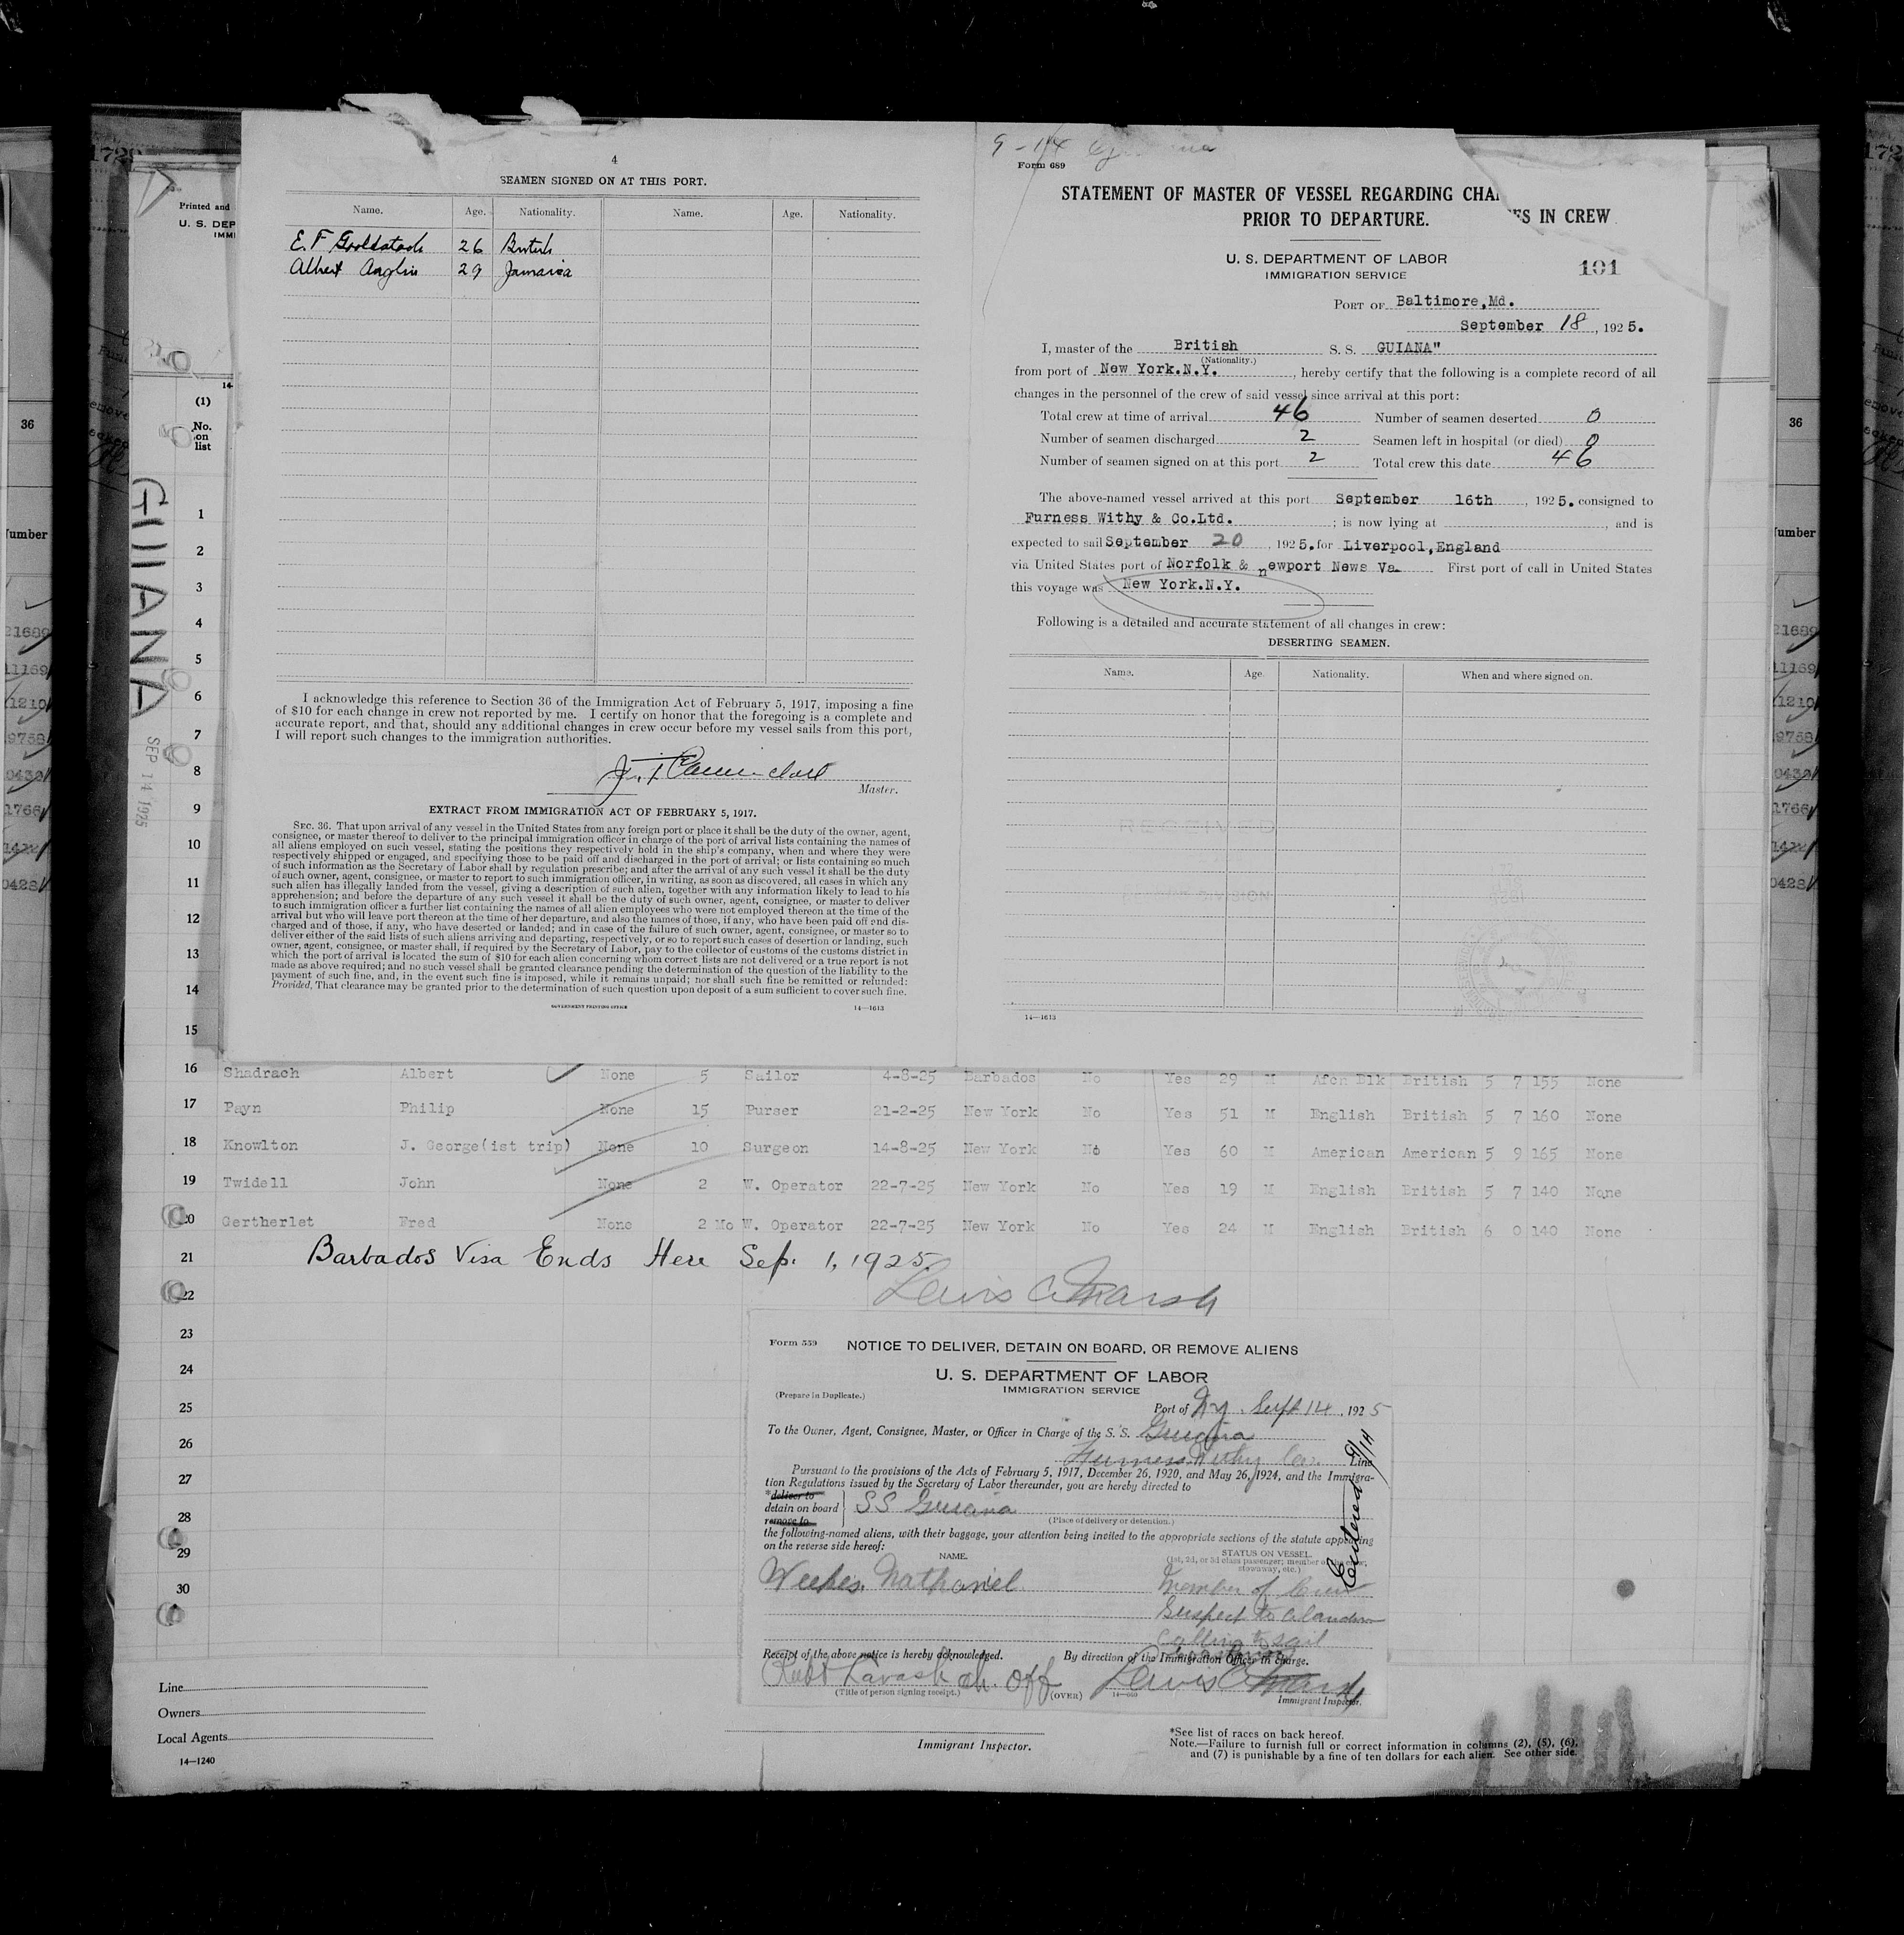 4
SEAMEN SIGNED ON AT THIS PORT.
Name. Age. Nationality. Name. Age. Nationality.
E. F. 26 British
Albert Anglin 29 Jamaica
I acknowledge this reference to Section 36 of the Immigration Act of February 5, 1917, imposing a fine
of $10 for each change in crew not reported by me. I certify on honor that the foregoing is a complete and
accurate report, and that, should any additional changes in crew occur before my vessel sails from this port,
I will report such changes to the immigration authorities.
Master.
EXTRACT FROM IMMIGRATION ACT OF FEBRUARY 5, 1917.
SEC. 36. That upon arrival of any vessel in the United States from any foreign port or place it shall be the duty of the owner, agent,
consignee, or master thereof to deliver to the principal immigration officer in charge of the port of arrival lists containing the names of
all aliens employed on such vessel, stating the positions they respectively hold in the ship's company, when and where they were
respectively shipped or engaged, and specifying those to be paid off and discharged in the port of arrival; or lists containing so much
of such information as the Secretary of Labor shall by regulation prescribe; and after the arrival of any such vessel it shall be the duty
of such owner, agent, consignee, or master to report to such immigration officer, in writing, as soon as discovered, all cases in which any
such alien has illegally landed from the vessel, giving a description of such alien, together with any information likely to lead to his
apprehension; and before the departure of any such vessel it shall be the duty of such owner, agent, consignee, or master to deliver
to such immigration officer a further list containing the names of all alien employees who were not employed thereon at the time of the
arrival but who will leave port thereon at the time of her departure, and also the names of those, if any, who have been paid off and dis-
charged and of those, if any, who have deserted or landed; and in case of the failure of such owner, agent, consignee, or master so to
deliver either of the said lists of such aliens arriving and departing, respectively, or so to report such cases of desertion or landing, such
owner, agent, consignee, or master shall, if required by the Secretary of Labor, pay to the collector of customs of the customs district in
which the port of arrival is located the sum of $10 for each alien concerning whom correct lists are not delivered or a true report is not
made as above required; and no such vessel shall be granted clearance pending the determination of the question of the liability to the
payment of such fine, and, in the event such fine is imposed, while it remains unpaid; nor shall such fine be remitted or refunded:
Provided, That clearance may be granted prior to the determination of such question upon deposit of a sum sufficient to cover such fine.
GOVERNMENT PRINTING OFFICE 14—1613
9-14
Form 689
STATEMENT OF MASTER OF VESSEL REGARDING CHA ES IN CREW
PRIOR TO DEPARTURE.
U. S. DEPARTMENT OF LABOR
IMMIGRATION SERVICE
101
PORT OF Baltimore,Md.
September 18, 1925.
I, master of the British S. S. GUIANA"
(Nationality.)
from port of New York.N.Y., hereby certify that the following is a complete record of all
changes in the personnel of the crew of said vessel since arrival at this port:
Total crew at time of arrival 46 Number of seamen deserted 0
Number of seamen discharged 2 Seamen left in hospital (or died) 0
Number of seamen signed on at this port 2 Total crew this date 46
The above-named vessel arrived at this port September 16th, 1925. consigned to
Furness Withy & Co.Ltd. ; is now lying at , and is
expected to sail September 20, 1925. for Liverpool,England
via United States port of Norfolk & newport News Va. First port of call in United States
this voyage was New York.N.Y.
Following is a detailed and accurate statement of all changes in crew:
DESERTING SEAMEN.
Name. Age. Nationality. When and where signed on.
RECEIVED
14—1613
Printed and
U. S. DEP
IMMI
14-
(1)
No.
on
list
GUIANA
SEP 14 1925
36
umber
21689
11169
1210
9768
0432
1766
1422
0428
1
2
3
4
5
6
7
8
9
10
11
12
13
14
15
16 Shadrach Albert None 5 Sailor 4-8-25 Barbados No Yes 29 M Afcn Blk British 5 7 155 None
17 Payn Philip None 15 Purser 21-2-25 New York No Yes 51 M English British 5 7 160 None
18 Knowlton J. George(ist trip) None 10 Surgeon 14-8-25 New York No Yes 60 M American American 5 9 165 None
19 Twidell John None 2 W. Operator 22-7-25 New York No Yes 19 M English British 5 7 140 None
20 Gertherlet Fred None 2 Mo W. Operator 22-7-25 New York No Yes 24 M English British 6 0 140 None
21 Barbados Visa Ends Here Sep. 1, 1925
22 Lewis C. Marsh
23
24
25
26
27
28
29
30
Form 559 NOTICE TO DELIVER, DETAIN ON BOARD, OR REMOVE ALIENS
U. S. DEPARTMENT OF LABOR
IMMIGRATION SERVICE
(Prepare in Duplicate.)
Port of N.Y. Sept 14, 1925
To the Owner, Agent, Consignee, Master, or Officer in Charge of the S. S. Guiana
Furness Withy Co. Line
Pursuant to the provisions of the Acts of February 5, 1917, December 26, 1920, and May 26, 1924, and the Immigra-
tion Regulations issued by the Secretary of Labor thereunder, you are hereby directed to
*deliver to
detain on board SS Guiana
remove to
(Place of delivery or detention.)
the following-named aliens, with their baggage, your attention being invited to the appropriate sections of the statute appearing
on the reverse side hereof:
NAME. STATUS ON VESSEL.
(1st, 2d, or 3d class passenger; member of the crew, stowaway, etc.)
Weekes, Nathaniel Member of Crew
Suspect to abandon
calling to sail
Entered 9/14
Receipt of the above notice is hereby acknowledged. By direction of the Immigration Officer in charge.
Robt Ch. Off Lewis C Marsh
(Title of person signing receipt.) (OVER) 14—660 Immigrant Inspector.
Line
Owners
Local Agents
14—1240
Immigrant Inspector.
*See list of races on back hereof.
Note.—Failure to furnish full or correct information in columns (2), (5), (6),
and (7) is punishable by a fine of ten dollars for each alien. See other side.